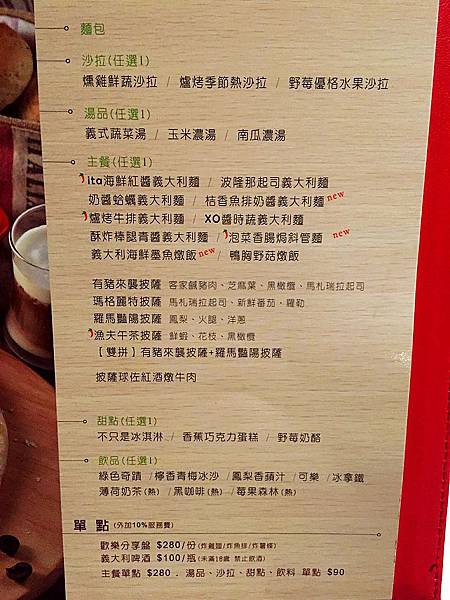 麵包
沙拉(任選1)
燻雞鮮蔬沙拉 / 爐烤季節熱沙拉 / 野莓優格水果沙拉
湯品(任選1)
義式蔬菜湯 / 玉米濃湯 / 南瓜濃湯
主餐(任選1)
ita海鮮紅醬義大利麵 / 波隆那起司義大利麵
奶醬蛤蠣義大利麵 / 桔香魚排奶醬義大利麵new
爐烤牛排義大利麵 / XO醬時蔬義大利麵
酥炸棒腿青醬義大利麵 / 泡菜香腸焗斜管麵 new
義大利海鮮墨魚燉飯new / 鴨胸野菇燉飯
有豬來襲披薩 客家鹹豬肉、芝麻葉、黑橄欖、馬札瑞拉起司
瑪格麗特披薩 馬札瑞拉起司、新鮮番茄、羅勒
羅馬豔陽披薩 鳳梨、火腿、洋蔥
漁夫午茶披薩 鮮蝦、花枝、黑橄欖
【雙拼】有豬來襲披薩+羅馬豔陽披薩
披薩球佐紅酒燉牛肉
甜點(任選1)
不只是冰淇淋 / 香蕉巧克力蛋糕 / 野莓奶酪
飲品(任選1)
綠色奇蹟 /檸香青梅冰沙 /鳳梨香蘋汁 /可樂 /冰拿鐵
薄荷奶茶(熱) /黑咖啡(熱) /莓果森林(熱)
單點(外加10%服務費)
歡樂分享盤 $280/份(炸雞翅/炸魚排/炸薯條)
義大利啤酒 $100/瓶(未滿18歲 禁止飲酒)
主餐單點 $280 . 湯品、沙拉、甜點、飲料 單點 $90